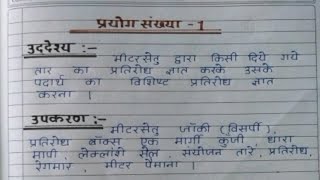 प्रयोग संख्या - 1
उद्देश्य :-
मीटरसेतु द्वारा किसी दिये गये
तार का प्रतिरोध ज्ञात करके उसके
पदार्थ का विशिष्ट प्रतिरोध ज्ञात
करना ।
उपकरण :-
मीटरसेतु जॉकी (विसर्पी),
प्रतिरोध बॉक्स एक मार्गी कुंजी, धारा
मापी, लेक्लांशे सेल, संयोजन तारे, प्रतिरोध,
रेगमार, मीटर पैमाना ।